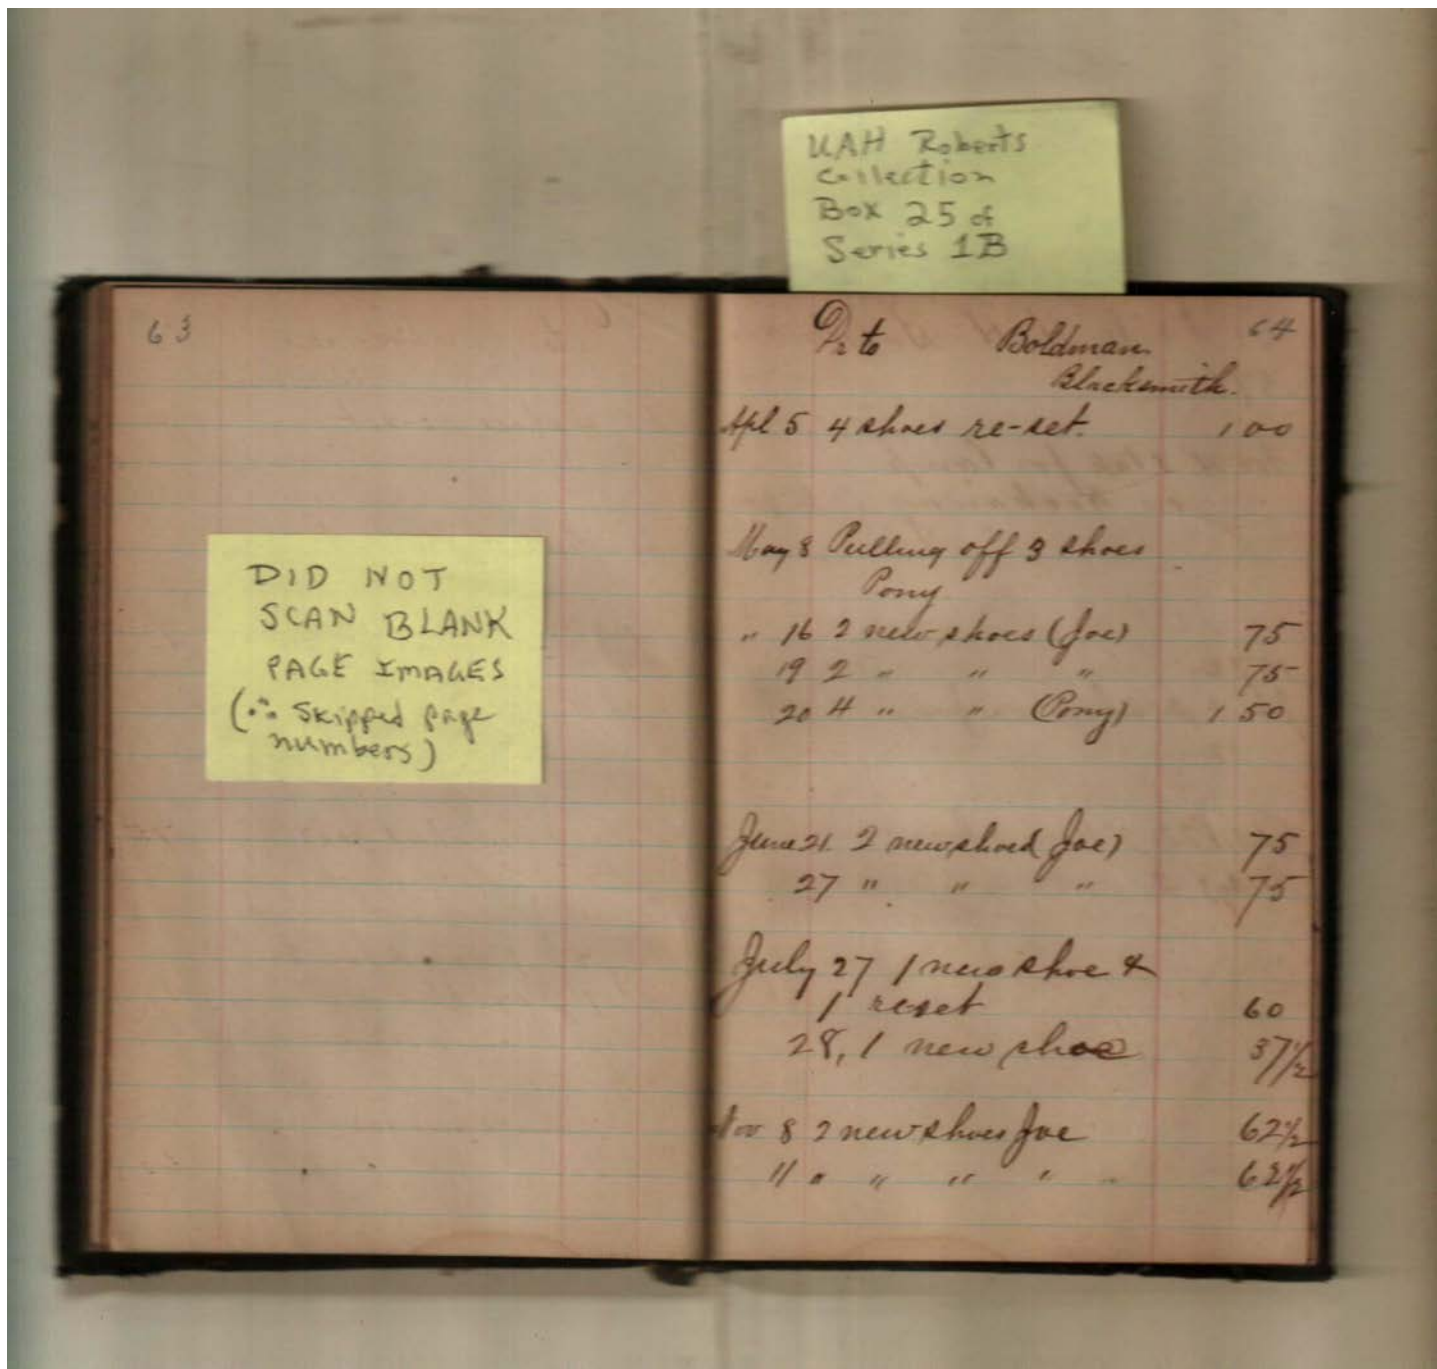 UAH Roberts
Collection
Box 25 of
Series 1B
63
DID NOT
SCAN BLANK
PAGE IMAGES
(∴ Skipped page
numbers)
64
Dr to Boldman
Blacksmith.
Apl 5 4 shoes re-set. 1 00
May 8 Pulling off 3 shoes
Pony
" 16 2 new shoes (Joe) 75
19 2 " " " 75
20 4 " " (Pony) 1 50
June 21 2 new shoed (Joe) 75
27 " " " 75
July 27 1 new shoe &
1 reset 60
28, 1 new shoe 37½
Nov 8 2 new shoes Joe 62½
11 " " " " 62½